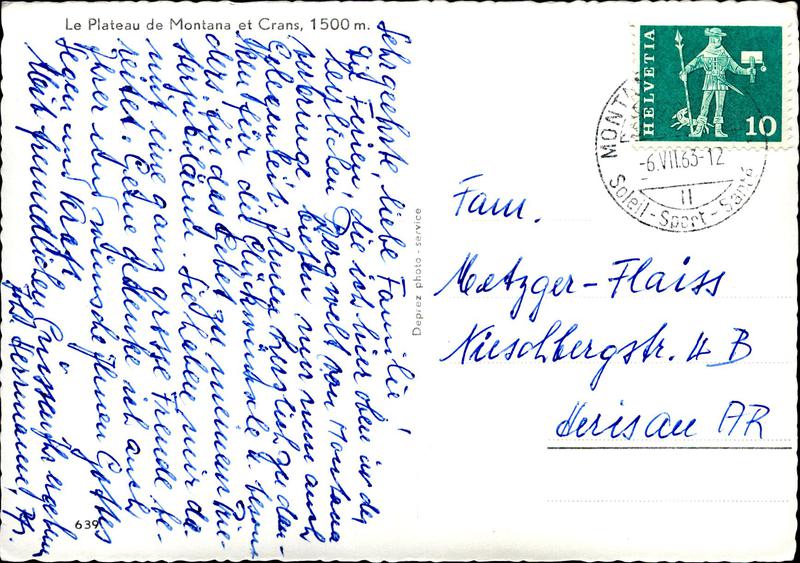 Le Plateau de Montana et Crans, 1500 m.
Sehr geehrte, liebe Familie!
Die Ferien, die ich hier oben in der
herrlichen Bergwelt von Montana
verbringe bieten mir nun auch
Gelegenheit Ihnen herzlich zu dan-
ken für die Glückwünsche u. beson-
ders für das Gebet zu meinem Prie-
sterjubiläum. Sie haben mir da-
mit eine ganz grosse Freude be-
reitet. Gerne gedenke ich auch
Ihrer und wünsche Ihnen Gottes
Segen und Kraft.
Mit freundlichen Grüssen Ihr ergebener
Herrmann, Pfr.
639
Deprez photo-service
HELVETIA
10
MONTANA
-6.VII.63-12
II
Soleil-Sport-Santé
Fam.
Metzger-Flaiss
Nieschbergstr. 4 B
Herisau AR